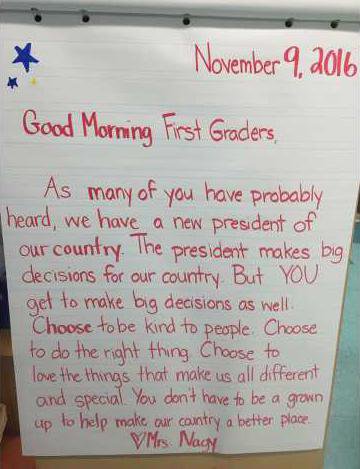 November 9, 2016
Good Morning First Graders,
As many of you have probably
heard, we have a new president of
our country. The president makes big
decisions for our country. But YOU
get to make big decisions as well.
Choose to be kind to people. Choose
to do the right thing. Choose to
love the things that make us all different
and special. You don't have to be a grown
up to help make our country a better place.
♡Mrs. Nagy